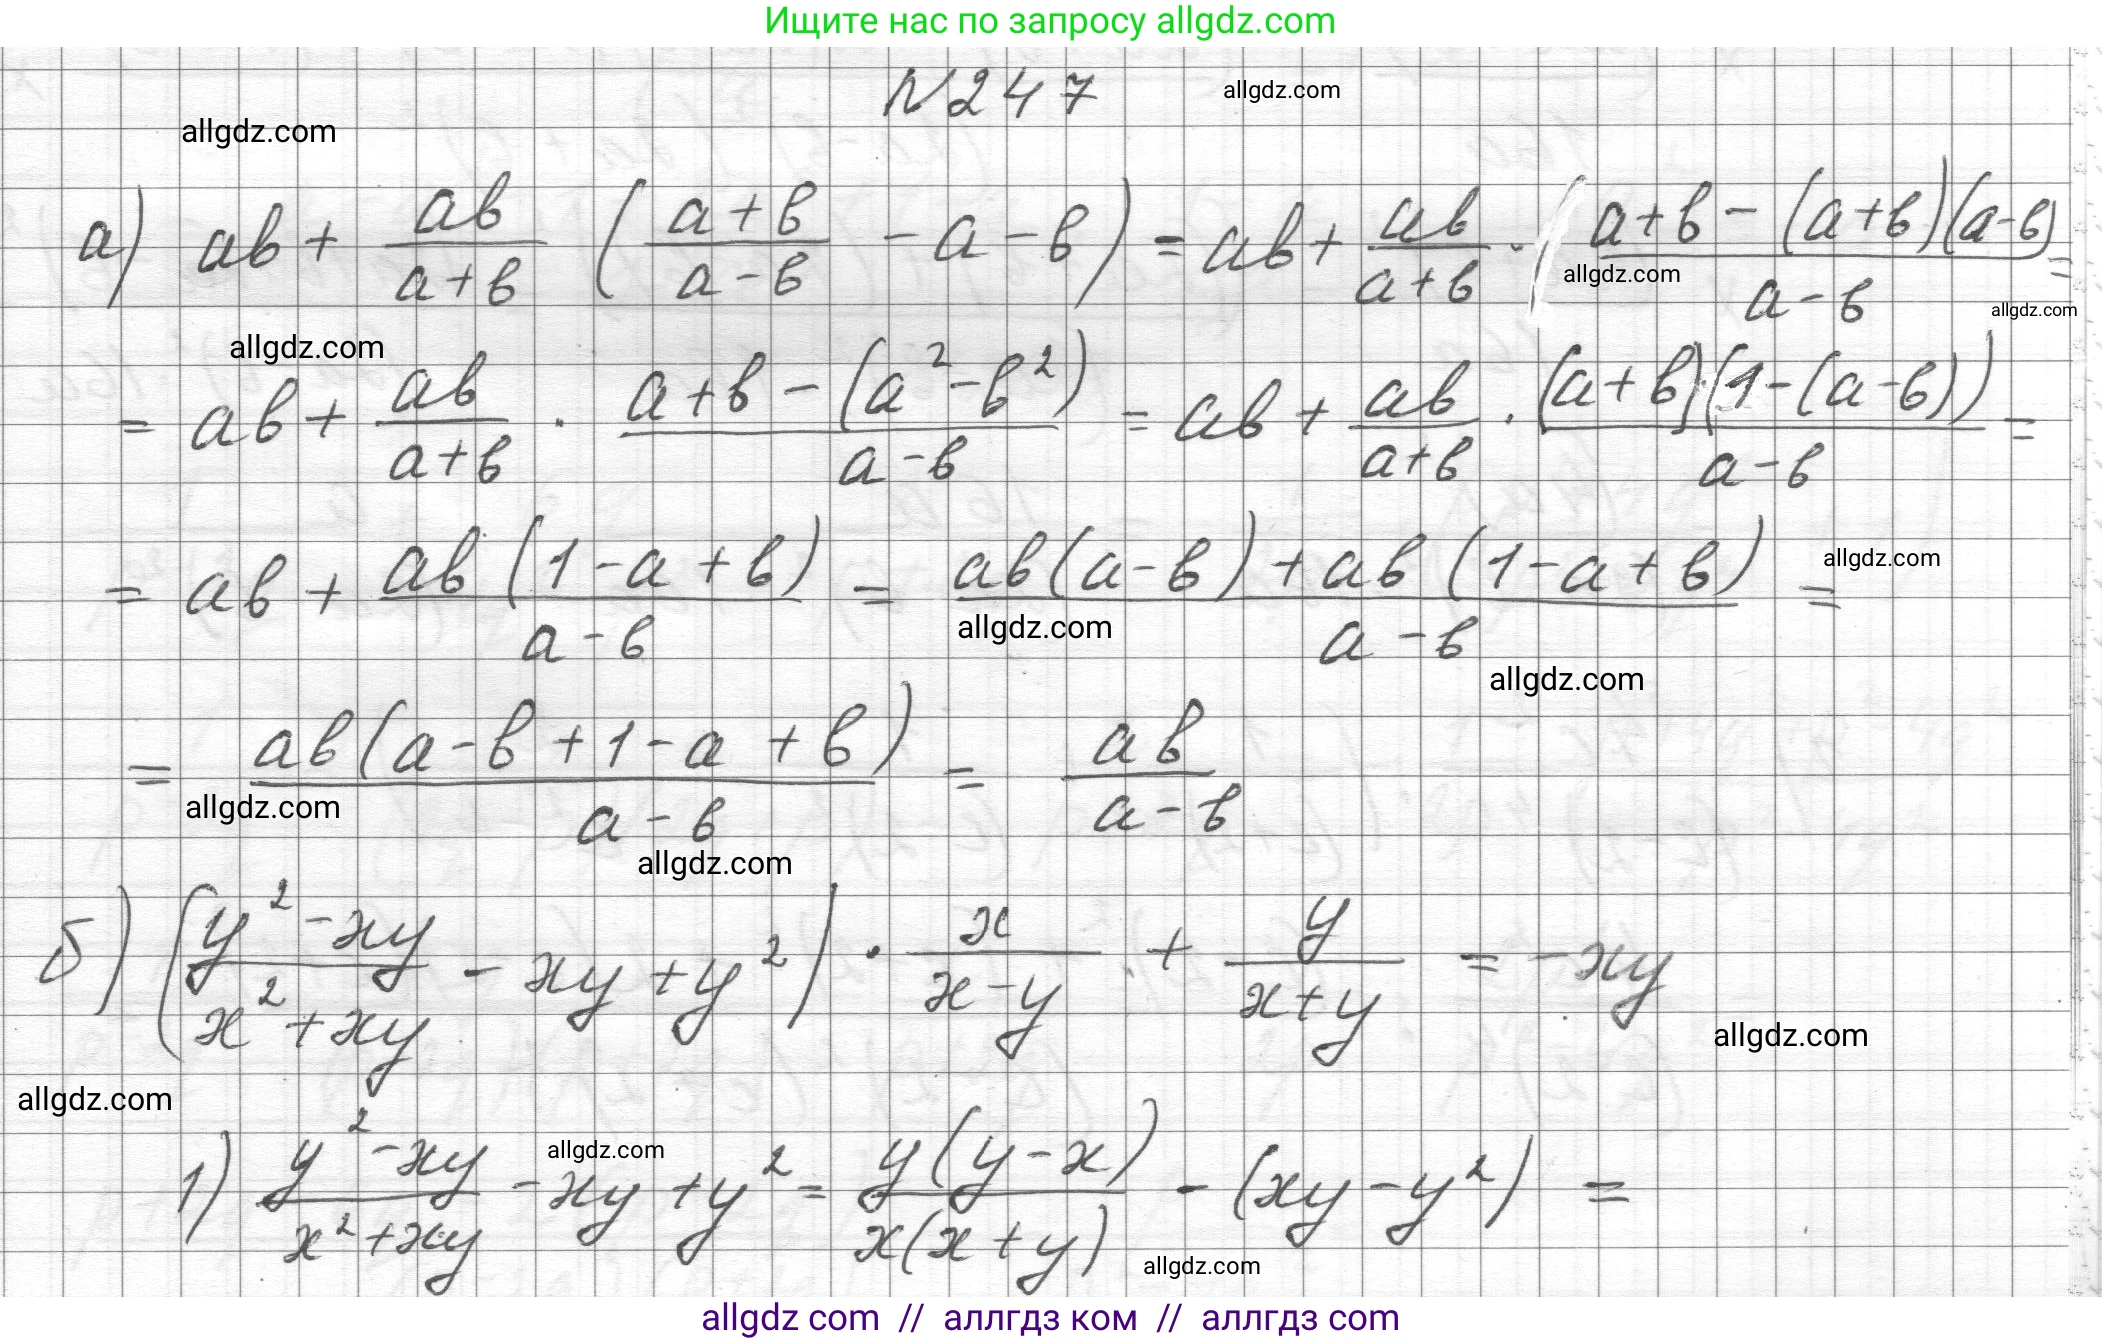 Ищите нас по запросу allgdz.com
N247
allgdz.com
allgdz.com
а) ab + ab/(a+b) ((a+b)/(a-b) - a - b) = ab + ab/(a+b) · (a+b-(a+b)(a-b))/(a-b) =
allgdz.com
allgdz.com
allgdz.com
= ab + ab/(a+b) · (a+b-(a²-b²))/(a-b) = ab + ab/(a+b) · ((a+b)(1-(a-b)))/(a-b) =
= ab + (ab(1-a+b))/(a-b) = (ab(a-b)+ab(1-a+b))/(a-b) =
allgdz.com
allgdz.com
allgdz.com
= (ab(a-b+1-a+b))/(a-b) = ab/(a-b)
allgdz.com
allgdz.com
б) ((y²-xy)/(x²+xy) - xy + y²) · x/(x-y) + y/(x+y) = -xy
allgdz.com
allgdz.com
1) (y²-xy)/(x²+xy) - xy + y² = (y(y-x))/(x(x+y)) - (xy-y²) =
allgdz.com
allgdz.com
allgdz com // аллгдз ком // аллгдз com